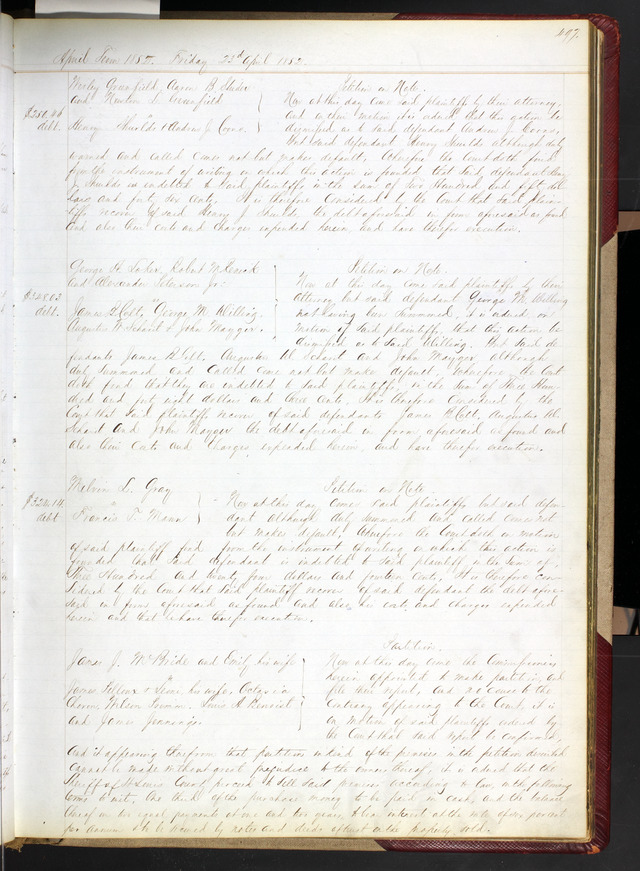 497.
April Term 1852. Friday 23rd April 1852.
Wesley Greenfield, Aaron B.
and Newton L. Greenfield
vs
Henry Shields & Andrew J.
$250.46
debt.
Petition in Note.
Now at this day come said plaintiffs by their attorney,
and on their motion it is ordered that this action be
dismissed as to said defendant Andrew J.
But said defendant Henry Shields although duly
warned and called comes not but makes default. Therefore the Court doth find
from the instrument of writing on which this action is founded that said defendant Henry
Shields is indebted to said plaintiffs in the sum of two Hundred and fifty dol
lars and forty six cents. It is therefore Considered by the Court that said plain
tiffs recover of said Henry Shields the debt aforesaid in form aforesaid as found
and also their costs and charges expended herein, and have therefor execution.
George H. Robert
and Alexander Peterson Jr.
vs
James B. Colt, George W. Willing,
Augustus W. Scharit & John Maygar.
$348.03
debt.
Petition in Note.
Now at this day come said plaintiffs by their
attorney, but said defendant George W. Willing
not having been summoned, it is ordered on
motion of said plaintiffs, that this action be
dismissed as to said Willing. But said de-
fendants James B. Colt, Augustus W. Scharit and John Maygar, although
duly summoned and called come not but make default. Wherefore the Court
doth find that they are indebted to said plaintiffs, in the sum of three Hun
dred and forty eight dollars and three cents. It is therefore Considered by the
Court that said plaintiffs recover of said defendants James B. Colt, Augustus W.
Scharit and John Maygar the debt aforesaid in form aforesaid as found and
also their costs and charges expended herein, and have therefor execution.
Melvin L. Gray
vs
Francis T. Mann
$324.14
debt
Petition in Note
Now at this day comes said plaintiff, but said defen-
dant although duly summoned and called comes not
but makes default; therefore the Court doth on motion
of said plaintiff find from the instrument of writing on which this action is
founded that said defendant is indebted to said plaintiff in the sum of
three Hundred and twenty four dollars and fourteen cents. It is therefore Con
sidered by the Court that said plaintiff recover of said defendant the debt afore-
said in form aforesaid as found and also his costs and charges expended
herein and that he have therefor execution.
James J. McBride and Emily his wife
vs
James & his wife, Octavia
Wilson Louis A. Benoist
and James Jennings.
Partition.
Now at this day come the Commissioners
herein appointed to make partition, and
file their report, and no cause to the
contrary appearing to the Court, it is
on motion of said plaintiffs ordered by
the Court that said report be confirmed,
And it appearing therefrom that partition in kind of the premises in the petition described
cannot be made without great prejudice to the owners thereof, it is ordered that the
Sheriff of St Louis County proceed to sell said premises according to law, on the following
terms to wit, one third of the purchase money to be paid in cash, and the balance
thereof in two equal payments at one and two years, to bear interest at the rate of six per cent
per annum & to be secured by notes and deeds of trust on the property sold.